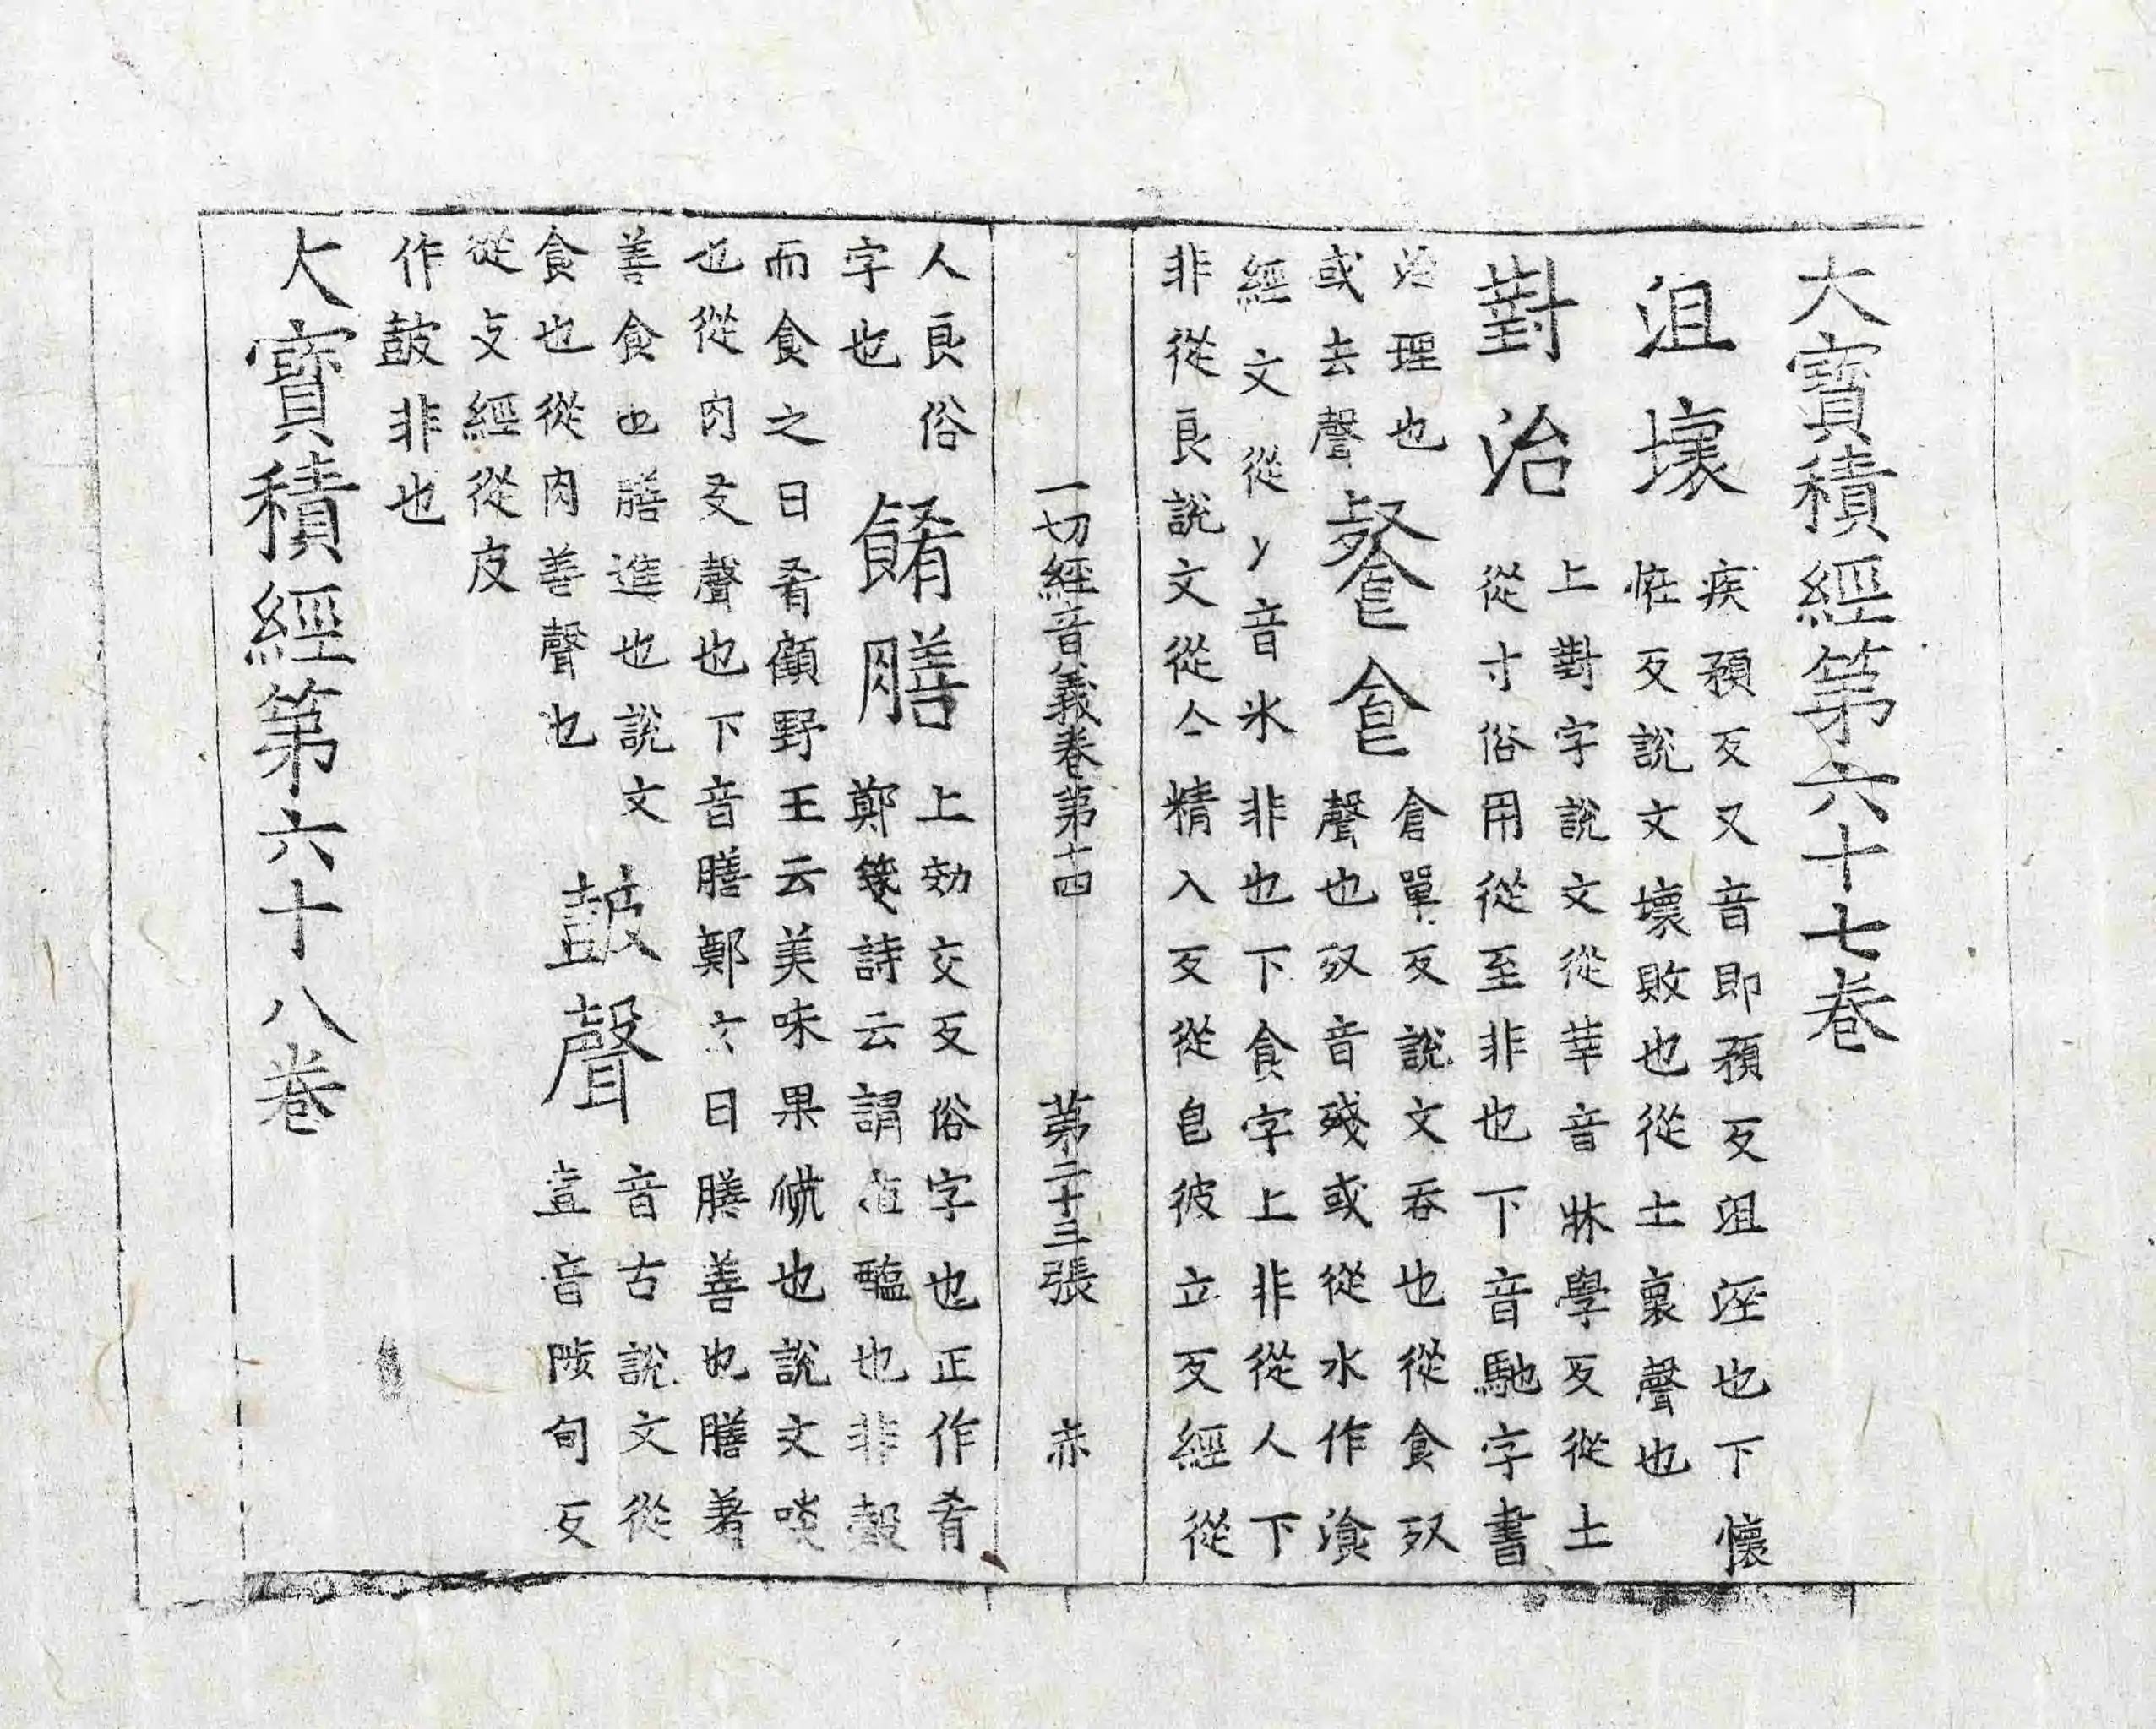 大寶積經第六十七卷
沮壞
疾預反又音即預反沮涇也下懷
恠反說文壞敗也從土褱聲也
對治
上對字說文從丵音牀學反從土
從寸俗用從至非也下音馳字書
治理也
或去聲
餐食
倉單反說文吞也從食𣦼
聲也𣦼音殘或從水作湌
經文從冫音氷非也下食字上非從人下
非從良說文從亼精入反從皀彼立反經從
一切經音義卷第十四 第二十三張 赤
人良俗
字也
餚膳
上効交反俗字也正作肴
鄭箋詩云謂葅醢也非穀
而食之曰肴顧野王云美味果𥢶也說文啖
也從肉爻聲也下音膳鄭玄曰膳善也膳著
善食也膳進也說文
食也從肉善聲也
皷聲
音古說文從
壴音陟句反
從攴經從皮
作皷非也
大寶積經第六十八卷